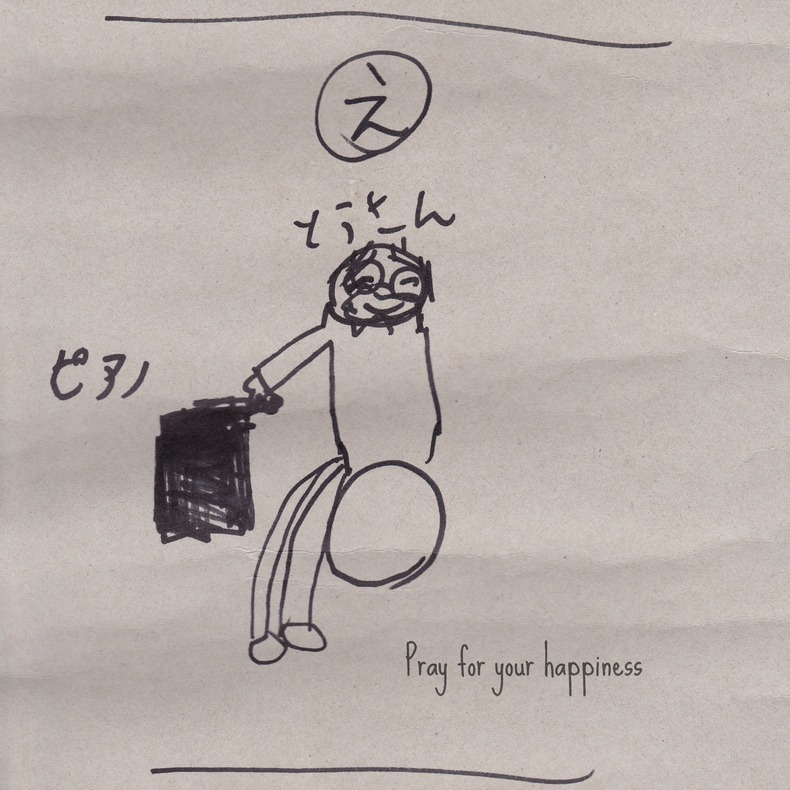 え
とうさん
ピアノ
Pray for your happiness